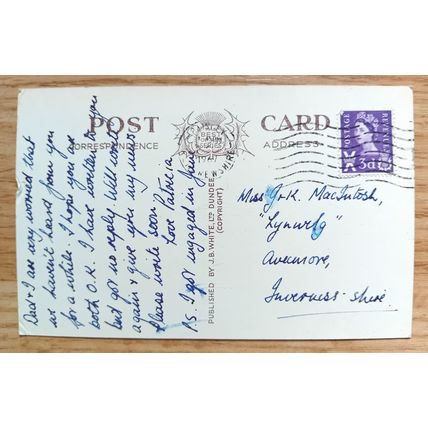 POST CARD
CORRESPONDENCE ADDRESS
BEST
SERIES
POSTAGE
REVENUE
3d
PUBLISHED BY J.B. WHITE, LTD DUNDEE
(COPYRIGHT)
Dad & I are very worried that
we haven't heard from you
for a while. I hope you are
both O.K. I have written to you
but got no reply. Will write
again & give you my news
Please write soon
Love Patricia
P.S. I got engaged in June
Miss J & K. MacIntosh,
"Lynwilg"
Aviemore,
Inverness-shire.